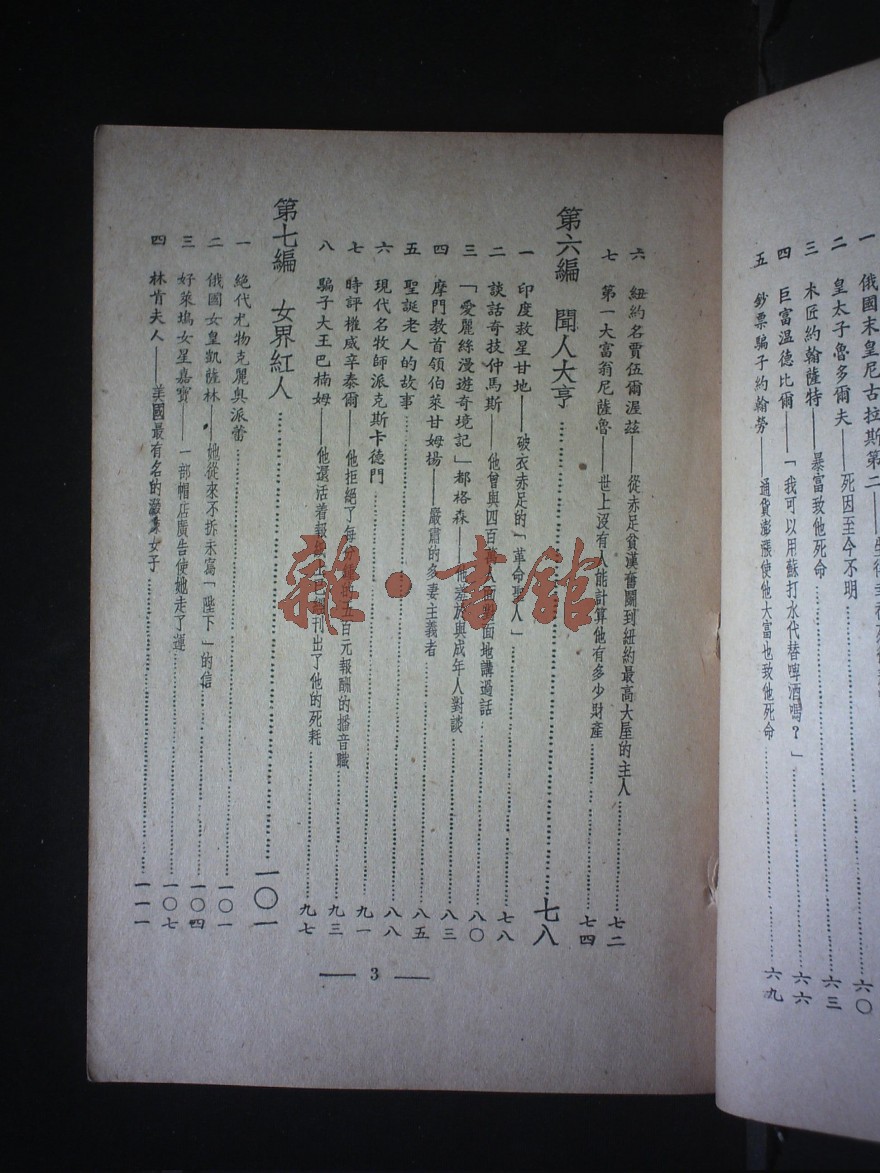 一 俄國末皇尼古拉斯第二——
二 皇太子魯多爾夫——死因至今不明………六〇
三 木匠約翰薩特——暴富致他死命………六三
四 巨富温德比爾——「我可以用蘇打水代替啤酒嗎？」………六六
五 鈔票騙子約翰勞——通貨澎漲使他大富也致他死命………六九
六 紐約名賈伍爾渥兹——從赤足貧漢奮鬭到紐約最高大屋的主人………七二
七 第一大富翁尼薩魯——世上沒有人能計算他有多少財產………七四
第六編 聞人大亨………七八
一 印度救星甘地——破衣赤足的「革命聖人」………七八
二 談話奇技仲馬斯——他曾與四百萬人面對面地講過話………八〇
三 「愛麗絲漫遊奇境記」都格森——他羞於與成年人對談………八三
四 摩門教首領伯萊甘姆揚——嚴肅的多妻主義者………八五
五 聖誕老人的故事………八八
六 現代名牧師派克斯卡德門………九一
七 時評權威辛泰爾——他拒絕了每分鐘五百元報酬的播音職………九三
八 騙子大王巴楠姆——他還活着報紙上刊出了他的死耗………九七
第七編 女界紅人………一〇一
一 絕代尤物克麗奧派蕾………一〇一
二 俄國女皇凱薩林——她從來不拆未寫「陛下」的信………一〇四
三 好萊塢女星嘉寶——一部帽店廣告使她走了運………一〇七
四 林肯夫人——美國最有名的潑辣女子………一一一
— 3 —
雜·書館